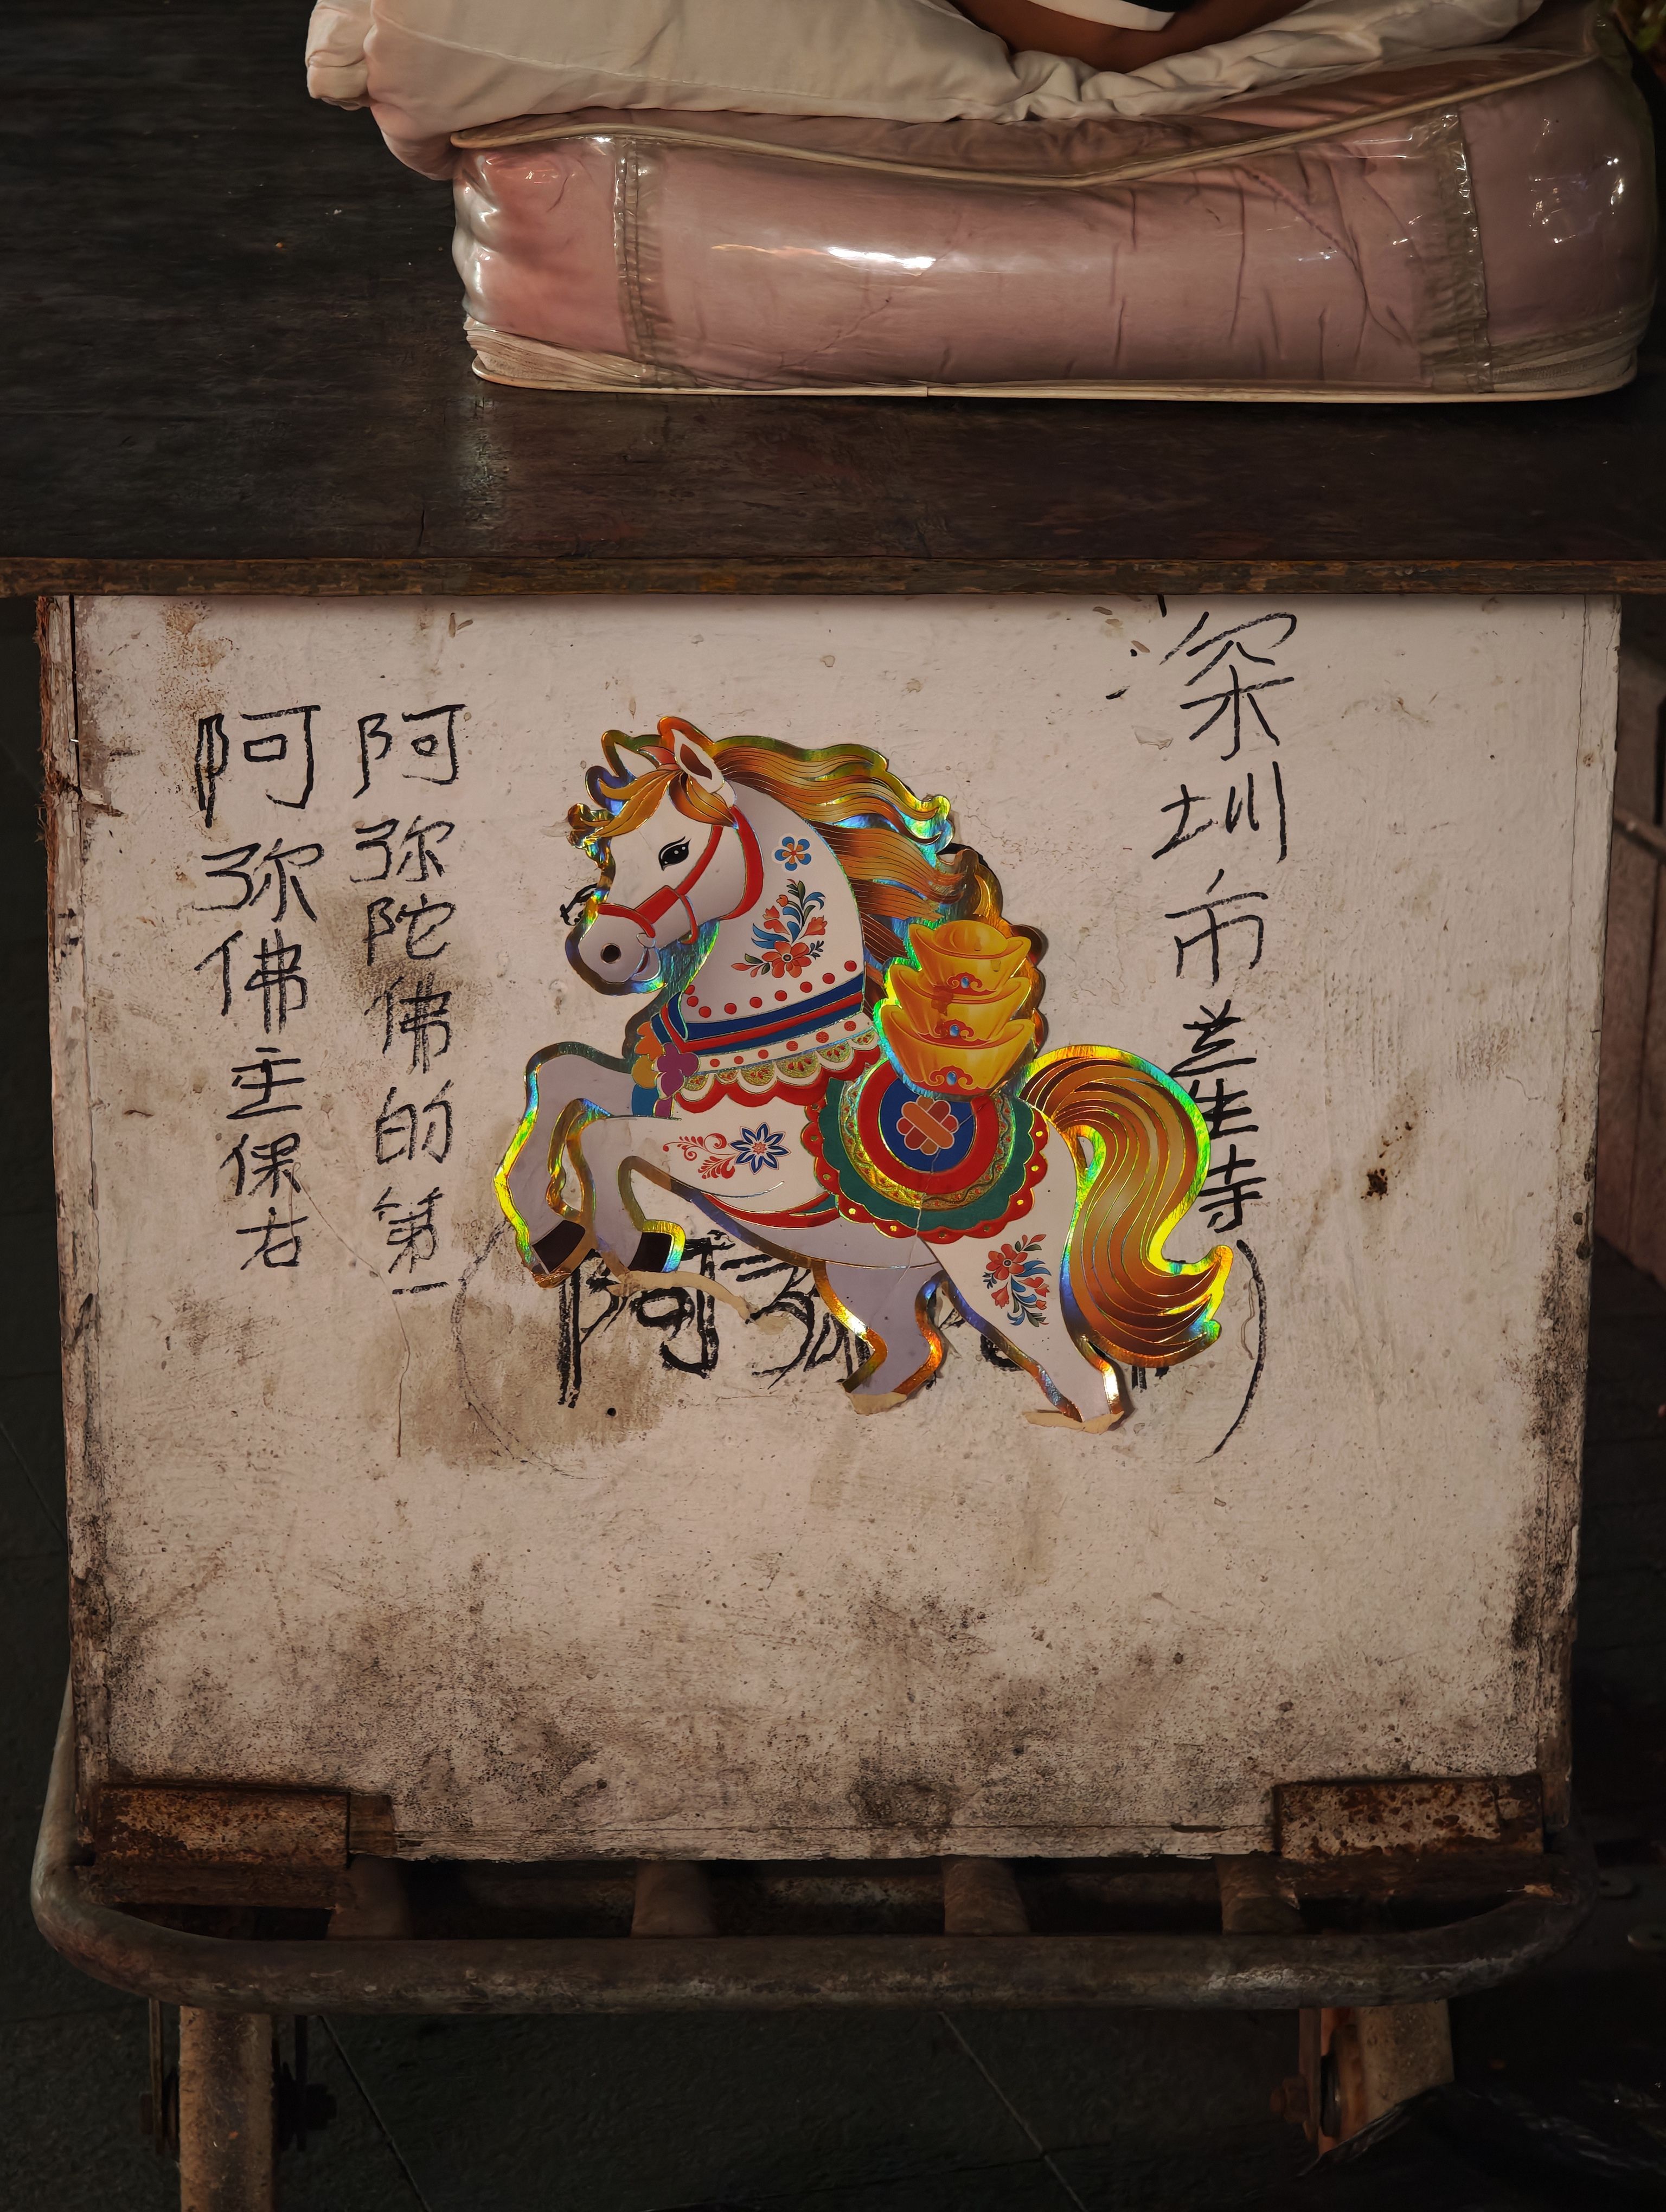 深圳市生寺
阿弥
阿弥陀佛的第一
阿弥佛主保右